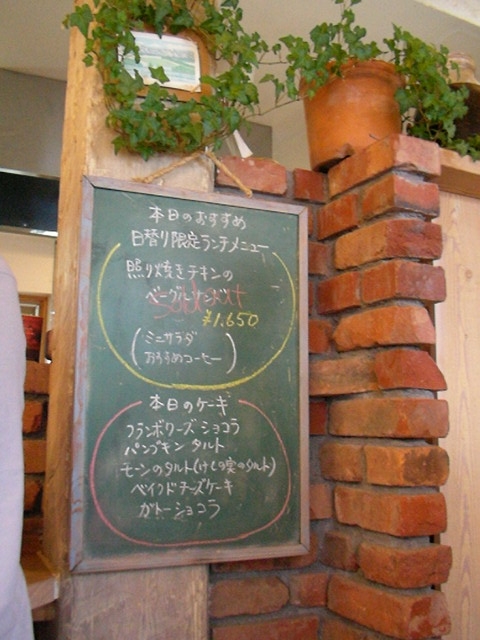 本日のおすすめ
日替り限定ランチメニュー
照り焼きチキンの
ベーグルサンド
Sold out
¥1.650
(ミニサラダ
おすすめコーヒー)
本日のケーキ
フランボワーズショコラ
パンプキンタルト
モーンのタルト(けしの実のタルト)
ベイクドチーズケーキ
ガトーショコラ